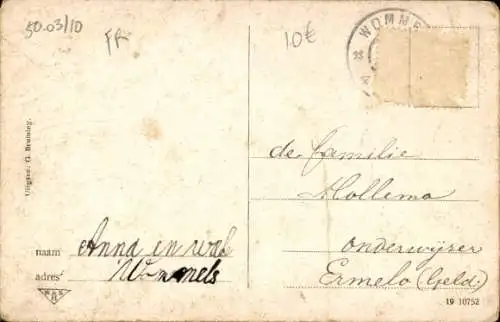 50.03/10
FR
10€
WOMME
Uitgave: G. Bruining.
de familie
Hollema
onderwijzer
Ermelo (Geld.)
naam Anna en
adres Wommels
19 10752